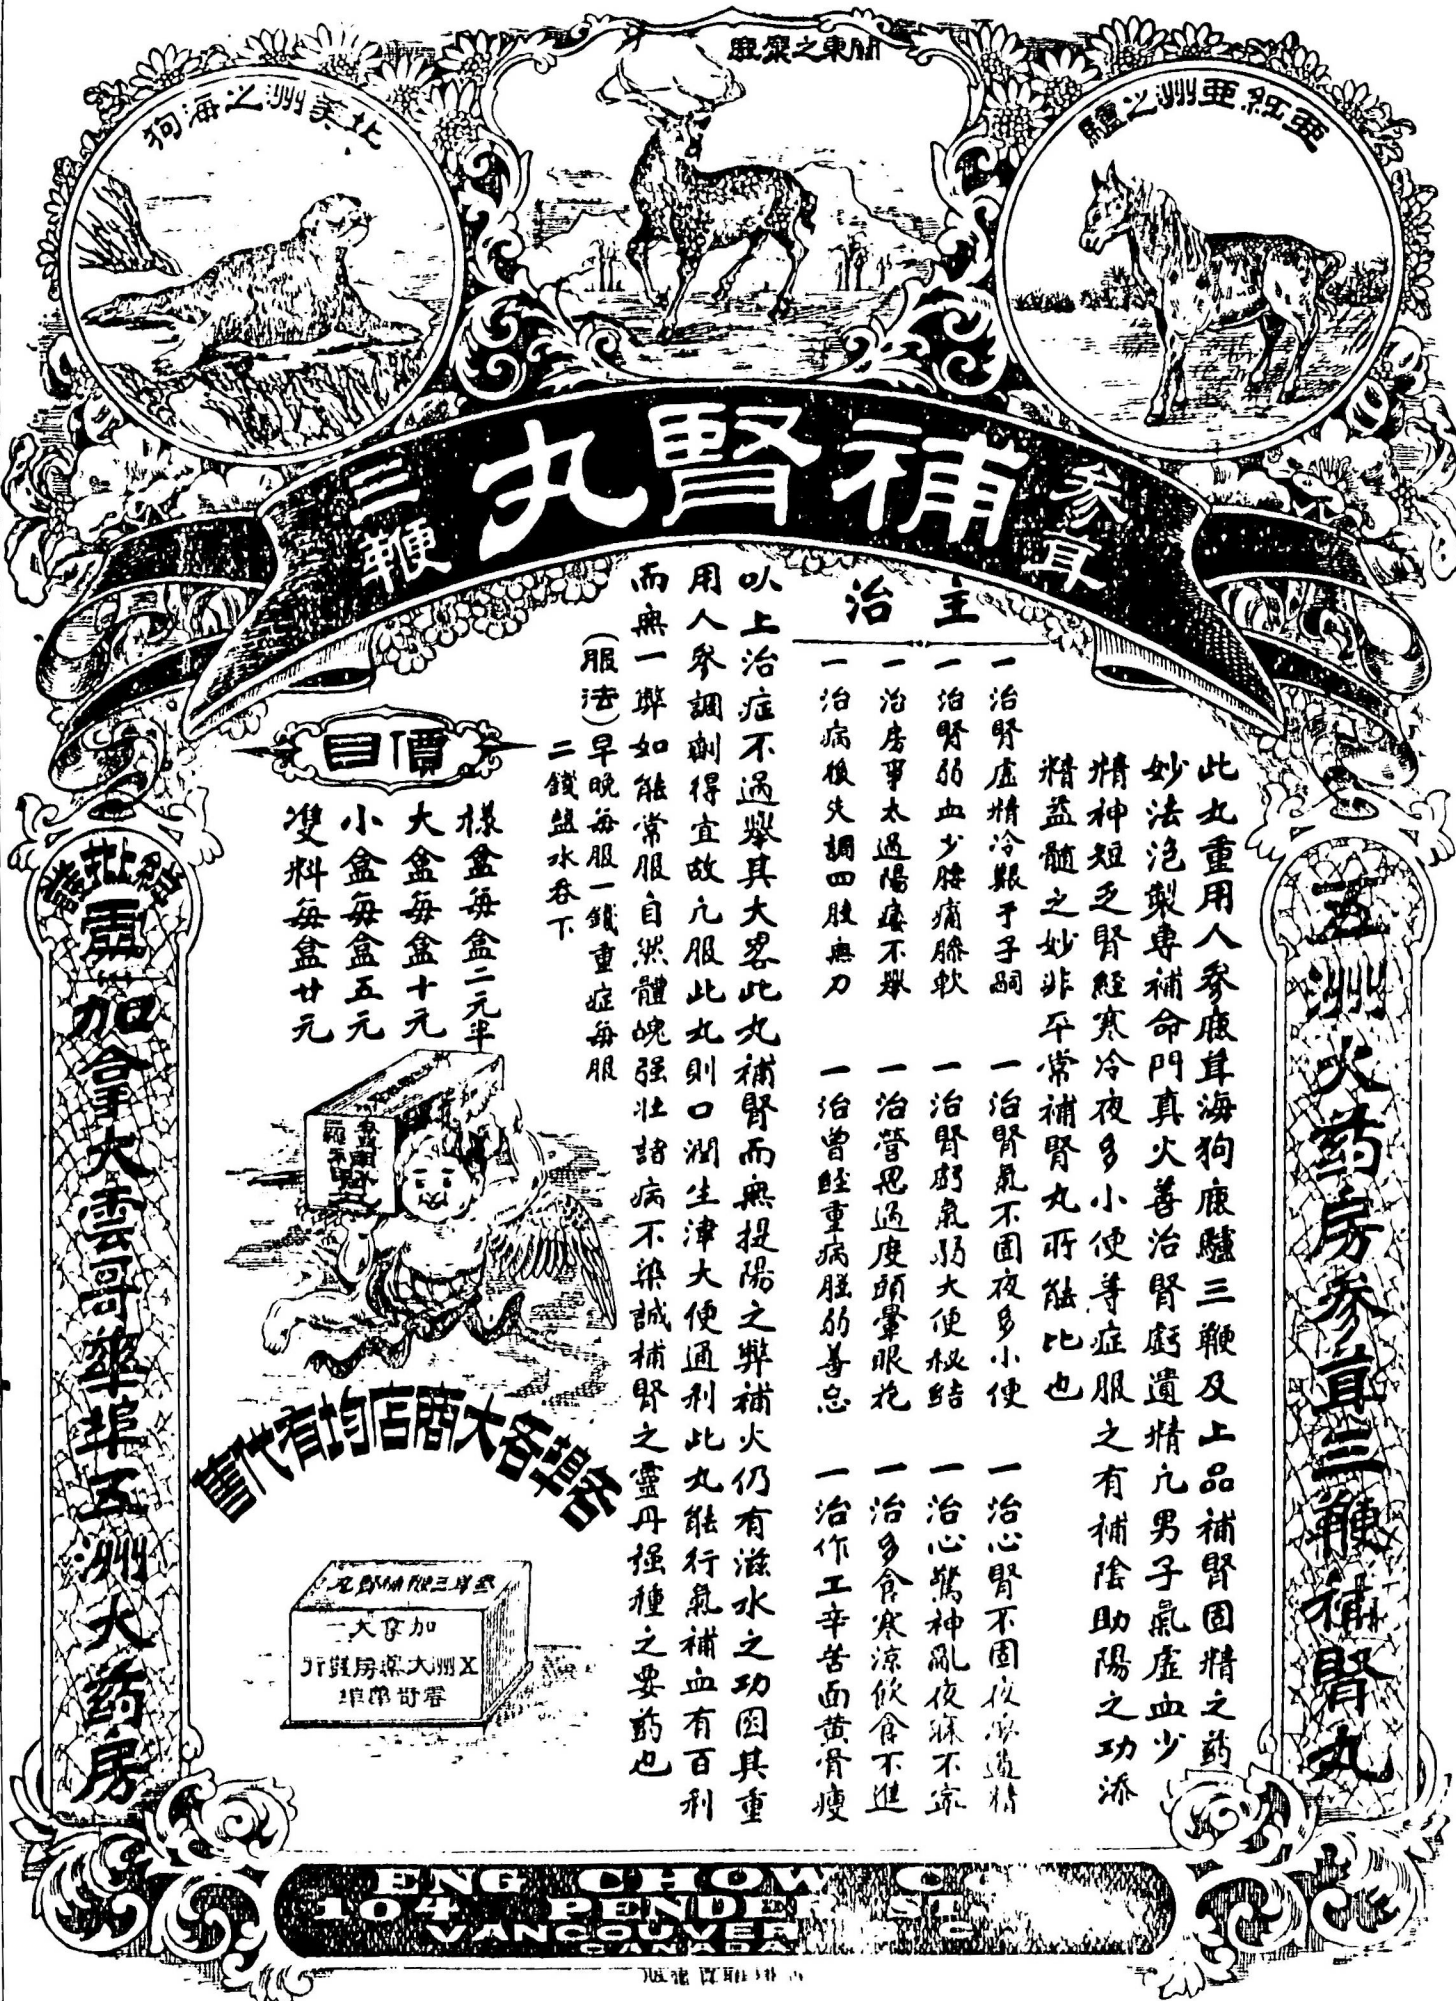 關東之麋鹿
亞細亞洲之驢
北美洲之海狗
參茸
補腎丸
三鞭
五洲大药房參茸三鞭補腎丸
此丸重用人參鹿茸海狗鹿驢三鞭及上品補腎固精之药
妙法泡製專補命門真火善治腎虧遺精凢男子氣虛血少
精神短乏腎經寒冷夜多小便等症服之有補陰助陽之功添
精益髓之妙非平常補腎丸所能比也
主治
一治腎虛精冷艱于子嗣
一治腎氣不固夜多小便
一治心腎不固夜夢遺精
一治腎弱血少腰痛膝軟
一治腎虧氣弱大便秘結
一治心驚神亂夜寐不寧
一治房事太過陽痿不舉
一治營思過度頭暈眼花
一治多食寒涼飲食不進
一治病後失調四肢無力
一治曾經重病腦弱善忘
一治作工辛苦面黃骨瘦
以上治症不過舉其大畧此丸補腎而無提陽之弊補火仍有滋水之功因其重
用人參調劑得宜故凢服此丸則口潤生津大便通利此丸能行氣補血有百利
而無一弊如能常服自然體魄强壯諸病不染誠補腎之靈丹種種之要药也
(服法)早晚每服一錢重症每服
二錢鹽水吞下
價目
樣盒每盒二元半
大盒每盒十元
小盒每盒五元
雙料每盒廿元
各埠各大商店均有代售
參茸三鞭補腎丸
加拿大
五洲大藥房製行
雲哥華埠
總批發處
加拿大雲哥華埠五洲大药房
ENG CHOW Co
104 PENDER ST
VANCOUVER
CANADA